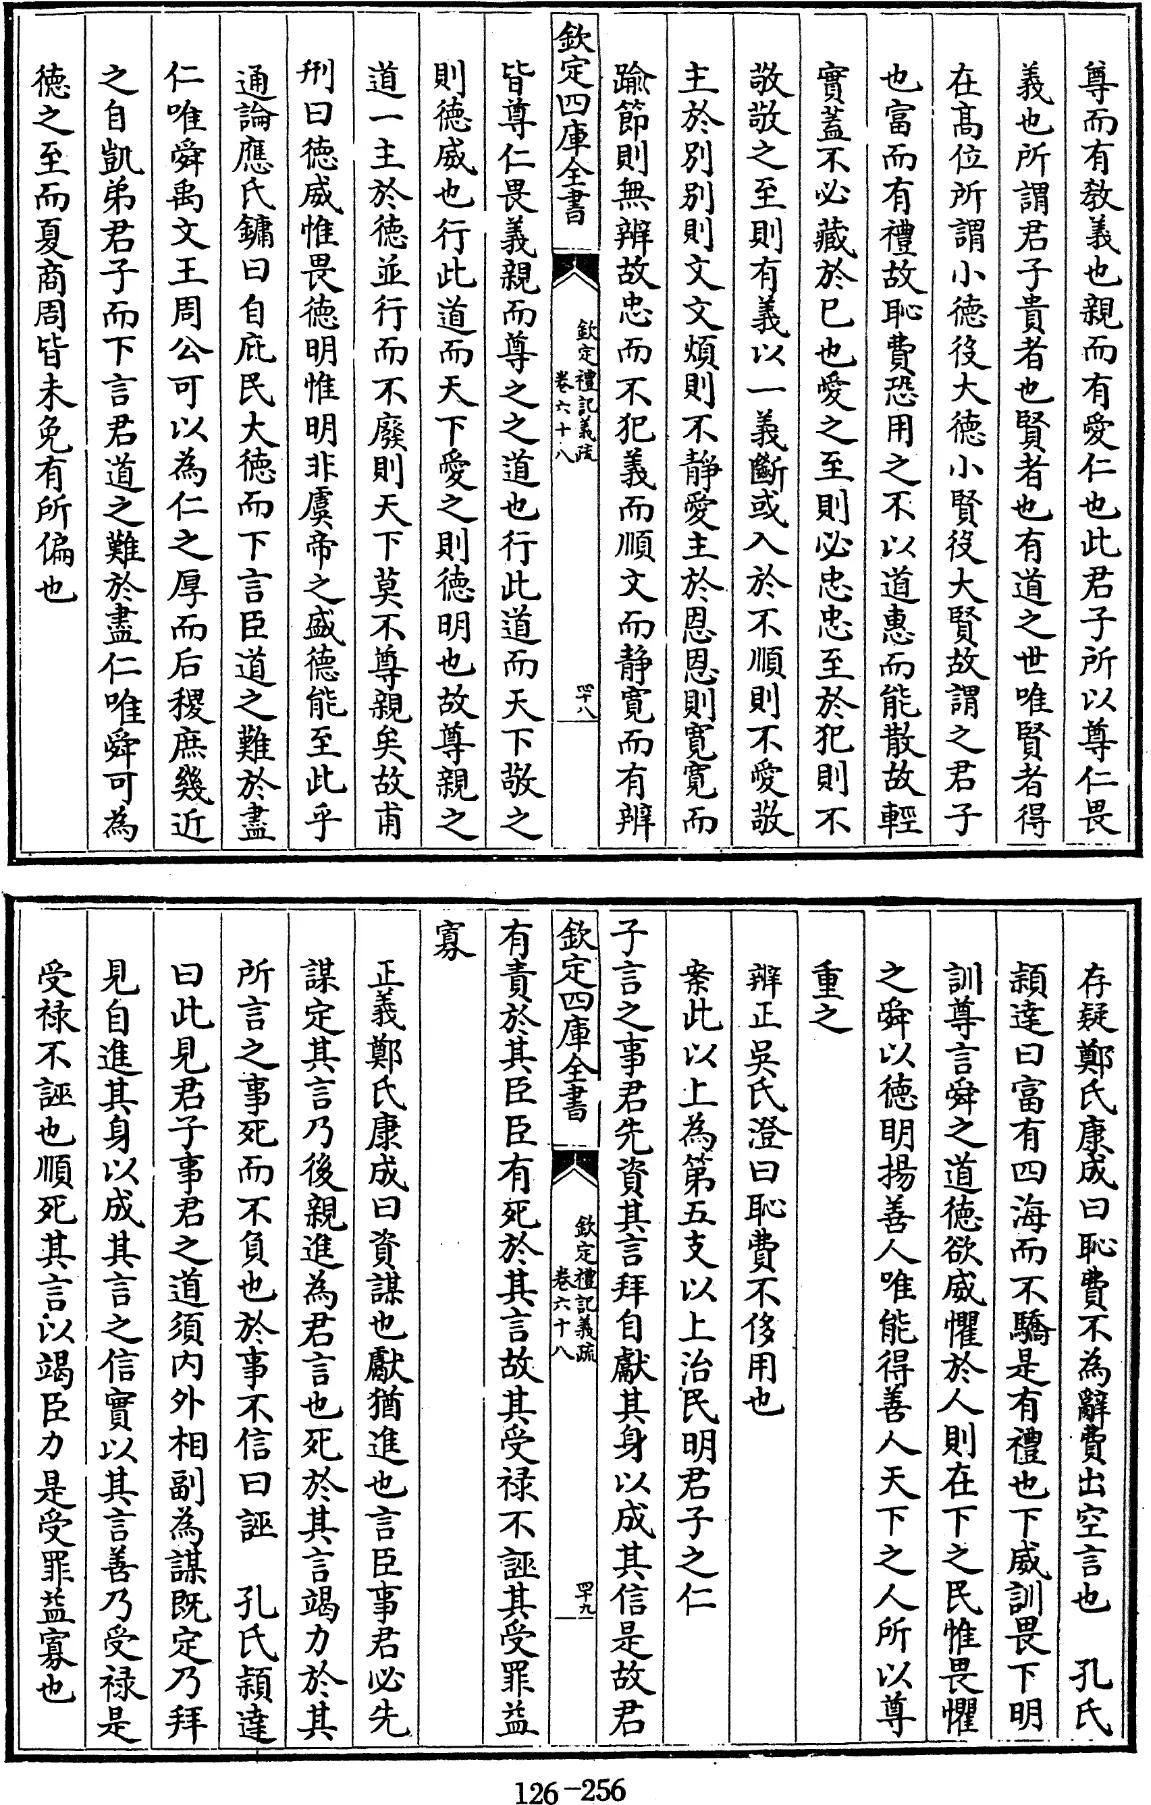 尊而有教義也親而有愛仁也此君子所以尊仁畏
義也所謂君子貴者也賢者也有道之世唯賢者得
在髙位所謂小德役大德小賢役大賢故謂之君子
也富而有禮故恥費恐用之不以道惠而能散故輕
實蓋不必藏於已也愛之至則必忠忠至於犯則不
敬敬之至則有義以一義斷或入於不順則不愛敬
主於別別則文文煩則不静愛主於恩恩則寛寛而
踰節則無辨故忠而不犯義而順文而静寛而有辨
欽定四庫全書
欽定禮記義疏
卷六十八
四十八
皆尊仁畏義親而尊之之道也行此道而天下敬之
則德威也行此道而天下愛之則德明也故尊親之
道一主於德並行而不廢則天下莫不尊親矣故甫
刑曰德威惟畏德明惟明非虞帝之盛德能至此乎
通論應氏鏞曰自庇民大德而下言臣道之難於盡
仁唯舜禹文王周公可以為仁之厚而后稷庶幾近
之自凱弟君子而下言君道之難於盡仁唯舜可為
德之至而夏商周皆未免有所偏也
存疑鄭氏康成曰恥費不為辭費出空言也　孔氏
頴達曰富有四海而不驕是有禮也下威訓畏下明
訓尊言舜之道德欲威懼於人則在下之民惟畏懼
之舜以德明揚善人唯能得善人天下之人所以尊
重之
辨正吳氏澄曰恥費不侈用也
案此以上為第五支以上治民明君子之仁
子言之事君先資其言拜自獻其身以成其信是故君
欽定四庫全書
欽定禮記義疏
卷六十八
四十九
有責於其臣臣有死於其言故其受禄不誣其受罪益
寡
正義鄭氏康成曰資謀也獻猶進也言臣事君必先
謀定其言乃後親進為君言也死於其言竭力於其
所言之事死而不負也於事不信曰誣　孔氏頴達
曰此見君子事君之道須内外相副為謀既定乃拜
見自進其身以成其言之信實以其言善乃受禄是
受禄不誣也順死其言以竭臣力是受罪益寡也
126-256